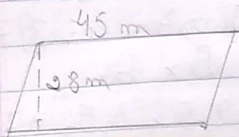 45 m
28m